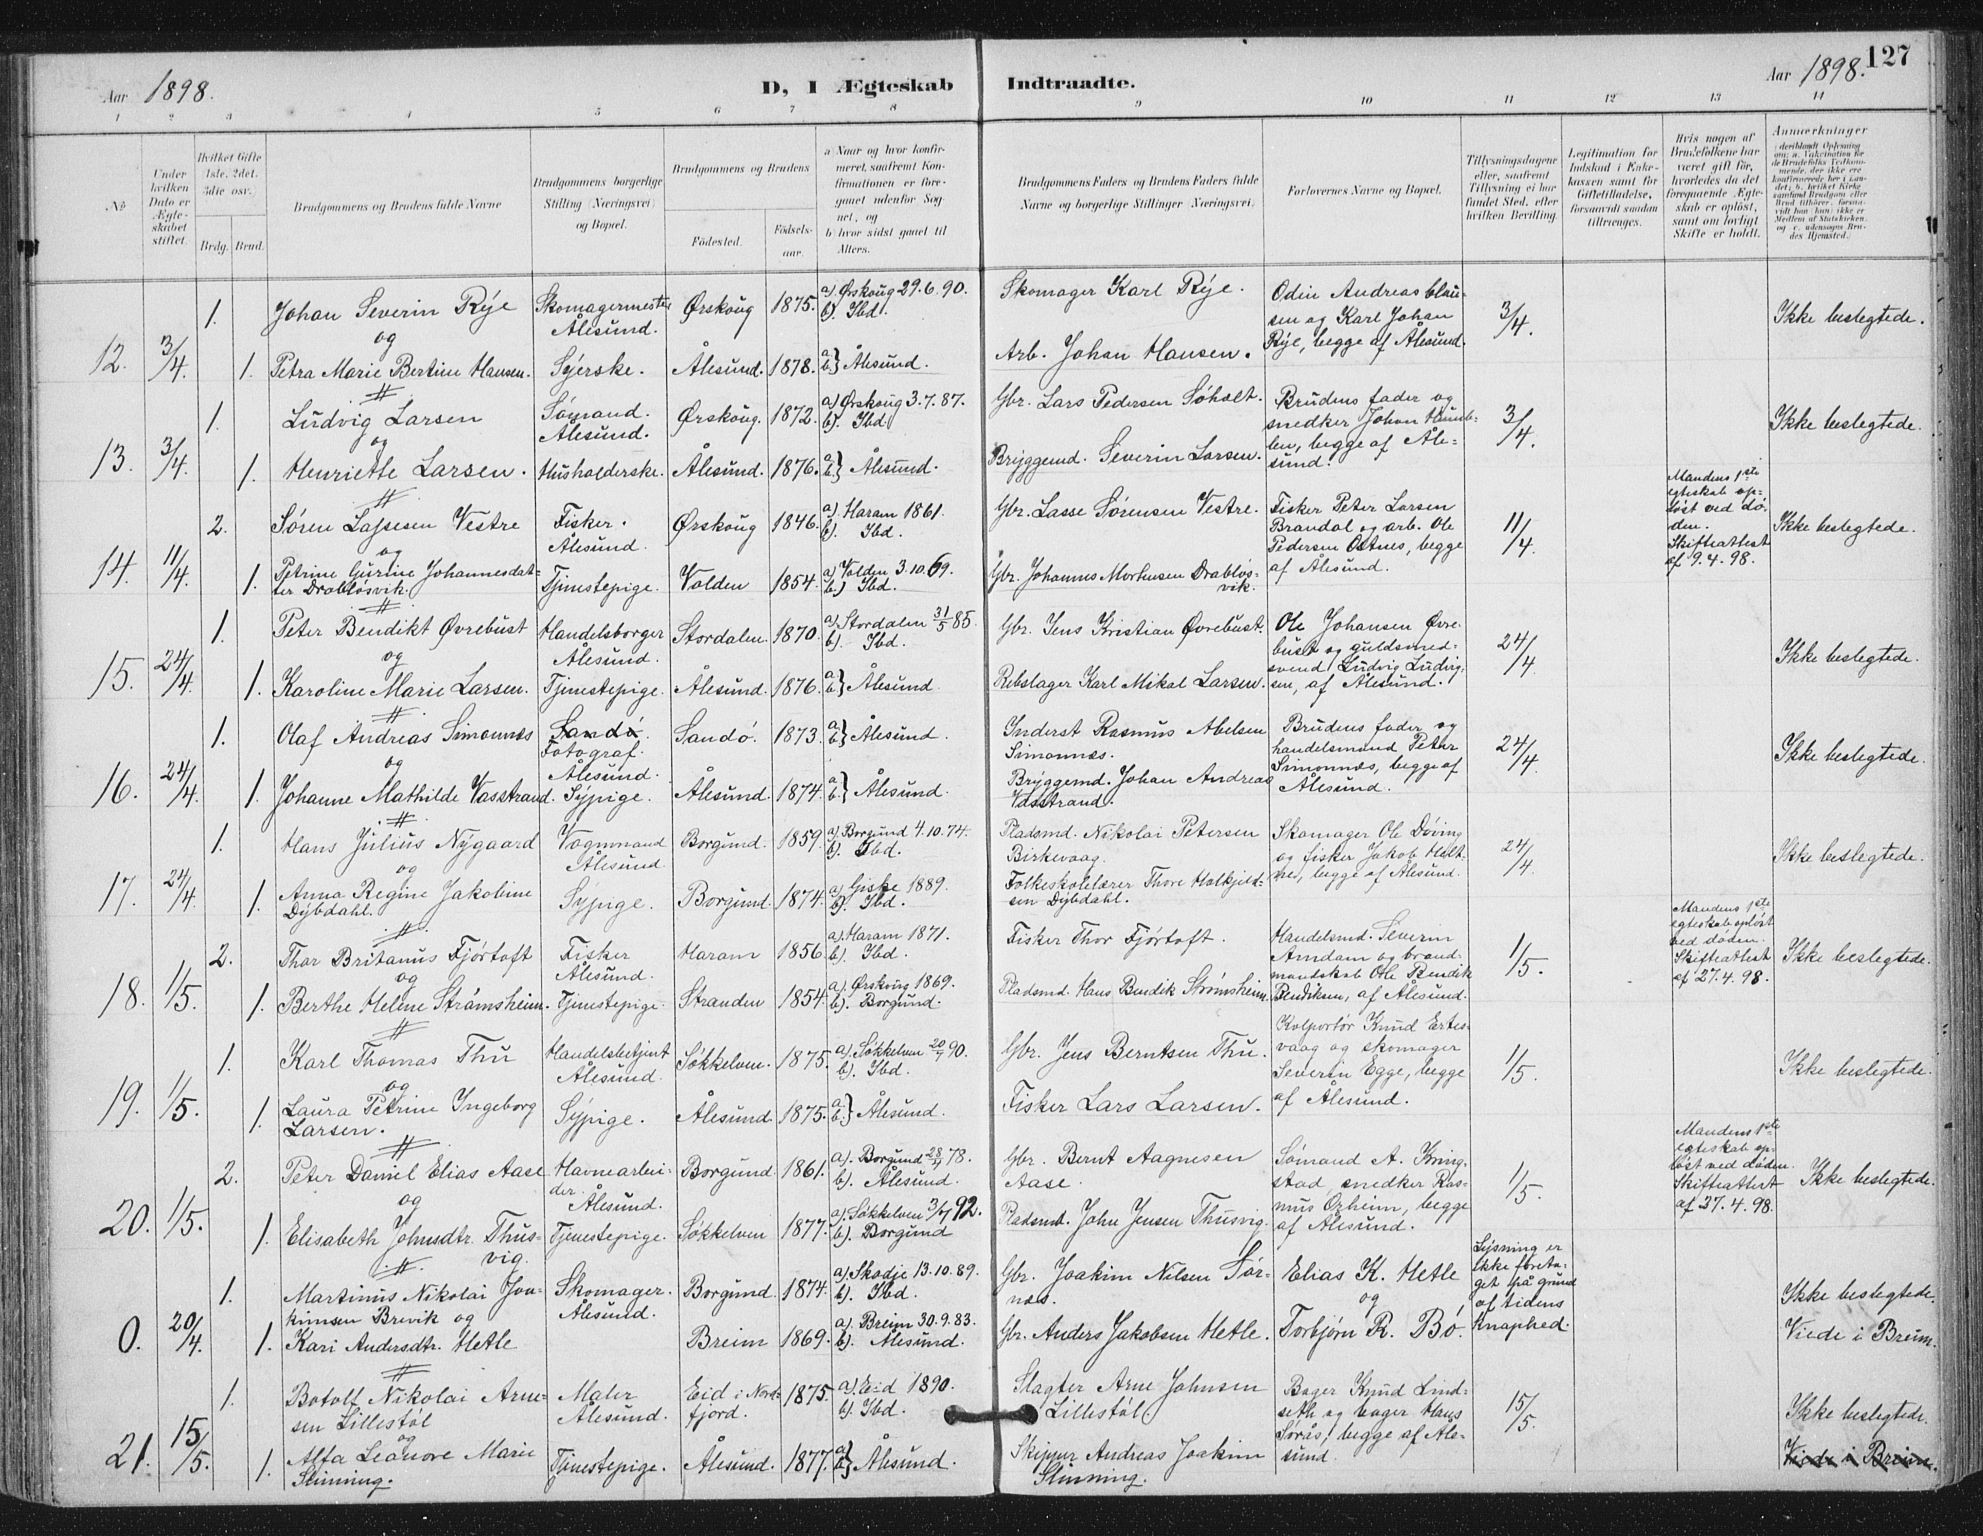 127
Aar 1898.
D, I Ægteskab Indtraadte.
Aar 1898.
1 2 3 4 5 6 7 8 9 10 11 12 13 14
No
Under hvilken Dato er Ægteskabet stiftet.
Hvilket Gifte 1ste, 2det, 3die osv.
Brdg. Brud.
Brudgommens og Brudens fulde Navne
Brudgommens borgerlige Stilling (Næringsvei) og Bopæl.
Brudgommens og Brudens
Fødested.
Fødsels-aar.
a Naar og hvor konfirmeret, saafremt Konfirmationen er foregaaet udenfor Sognet, og
b hvor sidst gaaet til Alters.
Brudgommens Faders og Brudens Faders fulde Navne og borgerlige Stillinger (Næringsvei).
Forlovernes Navne og Bopæl.
Tillysningsdagene eller, saafremt Tillysning ei har fundet Sted, efter hvilken Bevilling.
Legitimation for Indskud i Enkekassen samt for Giftetilladelse, forsaavidt saadan tiltrænges.
Hvis nogen af Brudefolkene har været gift før, hvorledes da det foregaaende Ægteskab er opløst, samt om lovligt Skifte er holdt.
Anmærkninger
12. 3/4. 1. Johan Severin Rÿe Skomagermester Ålesund. Ørskoug 1875. a) Ørskoug 29.6.90. b). Ibd. Skomager Karl Rÿe. Odin Andreas Clausen og Karl Johan Rÿe, begge af Ålesund. 3/4. Ikke beslegtede.
og
1. Petra Marie Bertine Hansen. Sÿerske. Ålesund. 1878. a. b.} Ålesund. Arb. Johan Hansen.
13. 3/4. 1. Ludvig Larsen Sömand. Ålesund. Ørskoug. 1872. a) Ørskoug 3.7.87. b). Ibd. Gbr. Lars Pedersen Söholt. Brudens fader og snedker Johan Humblen, begge af Ålesund. 3/4. Ikke beslegtede.
og
1. Henriette Larsen. Husholderske. Ålesund. 1876. a. b.} Ålesund. Bryggemd. Severin Larsen.
14. 11/4. 2. Søren Lassesen Vestre Fisker. Ålesund. Ørskoug 1846. a) Haram 1861. b). Ibd. Gbr. Lasse Sørensen Vestre. Fisker Peter Larsen Brandal og arb. Ole Pedersen Ostnes, begge af Ålesund. 11/4. Mandens 1ste egteskab opløst ved døden. Skifteattest af 9.4.98. Ikke beslegtede.
og
1. Petrine Gurine Johannesdatter Drabløsvik. Tjenestepige. Volden 1854. a) Volden 3.10.69. b.) Ibd. Gbr. Johannes Mortensen Drabløsvik.
15. 24/4. 1. Peter Bendikt Øvrebust Handelsborger Ålesund. Stordalen. 1870. a) Stordalen 31/5 85. b). Ibd. Gbr. Jens Kristian Øvrebust. Ole Johansen Øvrebust og guldsmedsvend Ludvig Ludvigsen, af Ålesund. 24/4 Ikke beslegtede.
og
1. Karoline Marie Larsen. Tjenestepige. Ålesund. 1876. a. b.} Ålesund. Rebslager Karl Mikal Larsen.
16. 24/4. 1. Olaf Andreas Simonnæs Sandö. Fotograf. Ålesund. Sandö. 1873. a. b.} Ålesund. Inderst Rasmus Abelsen Simonnæs. Brudens fader og handelsmand Peter Simonnæs, begge af Ålesund. 24/4. Ikke beslegtede.
og
1. Johanne Mathilde Vasstrand. Sÿpige. Ålesund. 1874. a. b.} Ålesund. Bryggemd. Johan Andreas Vasstrand.
17. 24/4. 1. Hans Julius Nÿgaard Vognmand Ålesund. Borgund. 1859. a) Borgund 4.10.74. b). Ibd. Pladsmd. Nikolai Petersen Birkevaag. Skomager Ole Döving og fisker Jakob begge af Ålesund. 24/4. Ikke beslegtede.
og
1. Anna Regine Jakobine Dÿbdahl. Sÿpige. Borgund. 1874. a) Giske 1889. b). Ibd. Folkeskolelærer Thore Halkjeldsen Dÿbdahl.
18. 1/5. 2. Thor Britanus Fjörtoft Fisker Ålesund. Haram 1856. a). Haram 1871. b). Ibd. Fisker Thor Fjörtoft. Handelsmd. Severin Amdam og brandmandskab Ole Bendik Bendiksen, af Ålesund. 1/5. Mandens 1ste egteskab opløst ved døden. Skifteattest af 27.4.98. Ikke beslegtede.
og
1. Berthe Helene Strømsheim. Tjenestepige. Stranden 1854. a). Ørskoug 1869. b). Borgund. Pladsmd. Hans Bendik Strømsheim.
19. 1/5. 1. Karl Thomas Thu Handelsbetjent Ålesund. Søkkelven. 1875. a). Søkkelven 20/7 90. b). Ibd. Gbr. Jens Berntsen Thu. Kolportör Knud Ertesvaag og skomager Severin Egge, begge af Ålesund. 1/5. Ikke beslegtede.
og
1. Laura Petrine Ingeborg Larsen. Sÿpige. Ålesund. 1875. a. b.} Ålesund. Fisker Lars Larsen.
20. 1/5. 2. Peter Daniel Elias Aase Havnearbeider. Ålesund. Borgund 1861. a). Borgund 28/4 78. b). Ålesund. Gbr. Bernt Aagnesen Aase. Sömand A. Kringstad, snedker Rasmus Orheim, begge af Ålesund. 1/5. Mandens 1ste egteskab opløst ved døden. Skifteattest af 27.4.98. Ikke beslegtede.
og
1. Elisabeth Johnsdtr. Thusvig. Tjenestepige. Søkkelven 1877. a). Søkkelven 3/7 92. b). Borgund Pladsmd. John Jensen Thusvig.
0. 20/4. 1. Martinus Nikolai Joakimsen Brevik og Skomager. Ålesund. Borgund. 1874. a). Skodje 13.10.89. b). Ibd. Gbr. Joakim Nilsen Sörnæs. Elias K. Hetle og Torbjörn R. Bö. Lysning er ikke foretaget på grund af tidens knaphed. Ikke beslegtede. Viede i Breim.
1. Kari Andersdtr. Hetle Breim 1869. a). Breim 30.9.83. b). Ålesund. Gbr. Anders Jakobsen Hetle.
21. 15/5. 1. Botolf Nikolai Arnesen Lillestöl Maler Ålesund. Eid i Nordfjord. 1875. a). Eid 1890. b). Ibd. Slagter Arne Johnsen Lillestöl. Bager Knud Lindseth og bager Hans Sørås, begge af Ålesund. 15/5. Ikke beslegtede.
og
1. Alfa Leonore Marie Slinning. Tjenestepige. Ålesund. 1877. a. b.} Ålesund. Skipper Andreas Joakim Slinning. Viede i Breim.